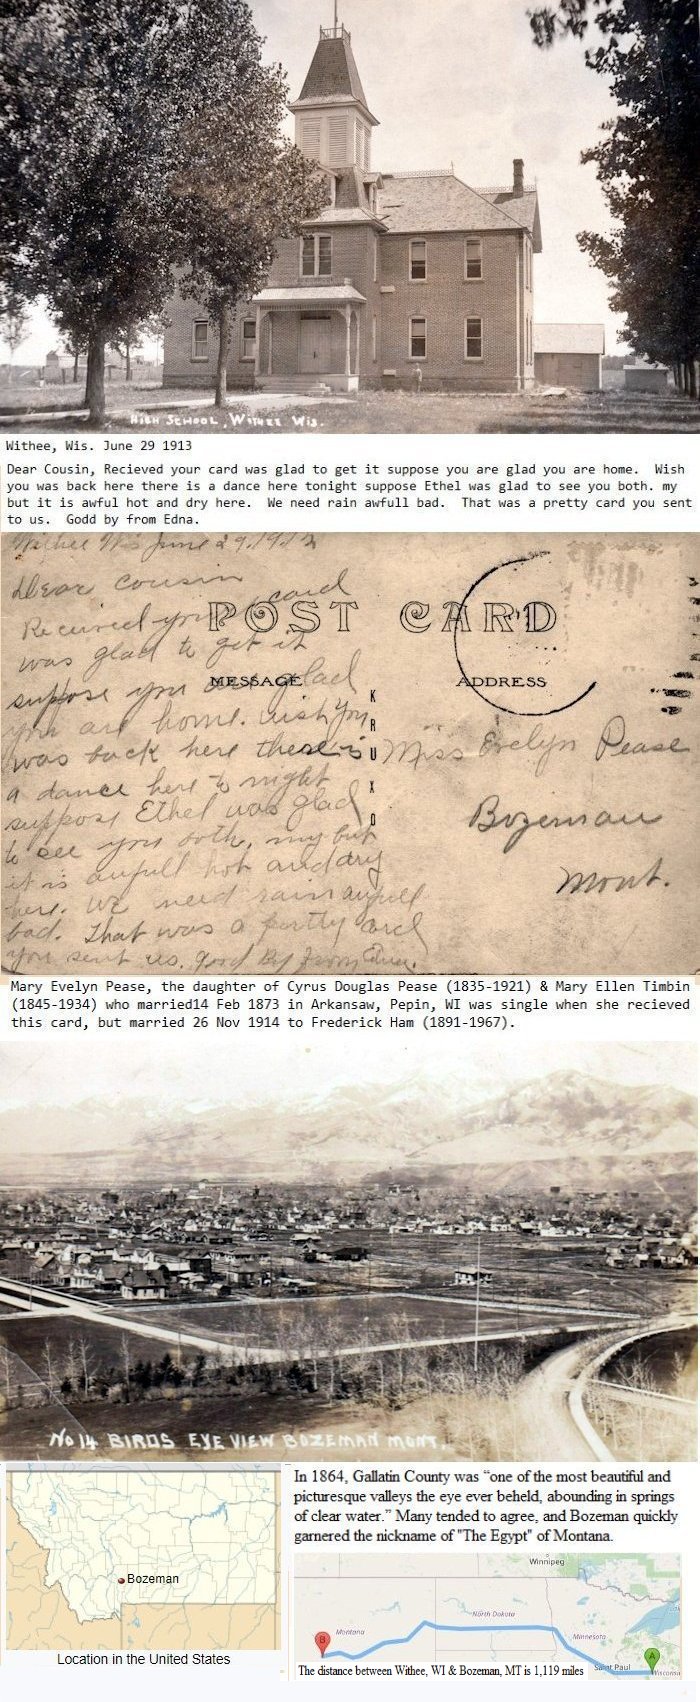 HIGH SCHOOL, WITHEE WIS.
Withee, Wis. June 29 1913
Dear Cousin, Recieved your card was glad to get it suppose you are glad you are home.  Wish
you was back here there is a dance here tonight suppose Ethel was glad to see you both. my
but it is awful hot and dry here.  We need rain awfull bad.  That was a pretty card you sent
to us.  Godd by from Edna.
Withee Wis June 29, 1913
Dear cousin
Recieved your card
POST CARD
was glad to get it
suppose you are glad
MESSAGE
ADDRESS
you are home. wish you
was back here there is
KRUXO
Miss Evelyn Pease
a dance here to night
suppose Ethel was glad
Bozeman
to see you both, my but
it is awfull hot and dry
Mont.
here. we need rain awfull
bad. That was a pertty card
you sent us. good By From Edna.
Mary Evelyn Pease, the daughter of Cyrus Douglas Pease (1835-1921) & Mary Ellen Timbin
(1845-1934) who married14 Feb 1873 in Arkansaw, Pepin, WI was single when she recieved
this card, but married 26 Nov 1914 to Frederick Ham (1891-1967).
No 14 BIRDS EYE VIEW BOZEMAN MONT.
In 1864, Gallatin County was “one of the most beautiful and
picturesque valleys the eye ever beheld, abounding in springs
of clear water.” Many tended to agree, and Bozeman quickly
garnered the nickname of "The Egypt" of Montana.
Bozeman
Location in the United States
Winnipeg
North Dakota
Montana
Minnesota
B
A
Saint Paul
Wisconsin
The distance between Withee, WI & Bozeman, MT is 1,119 miles